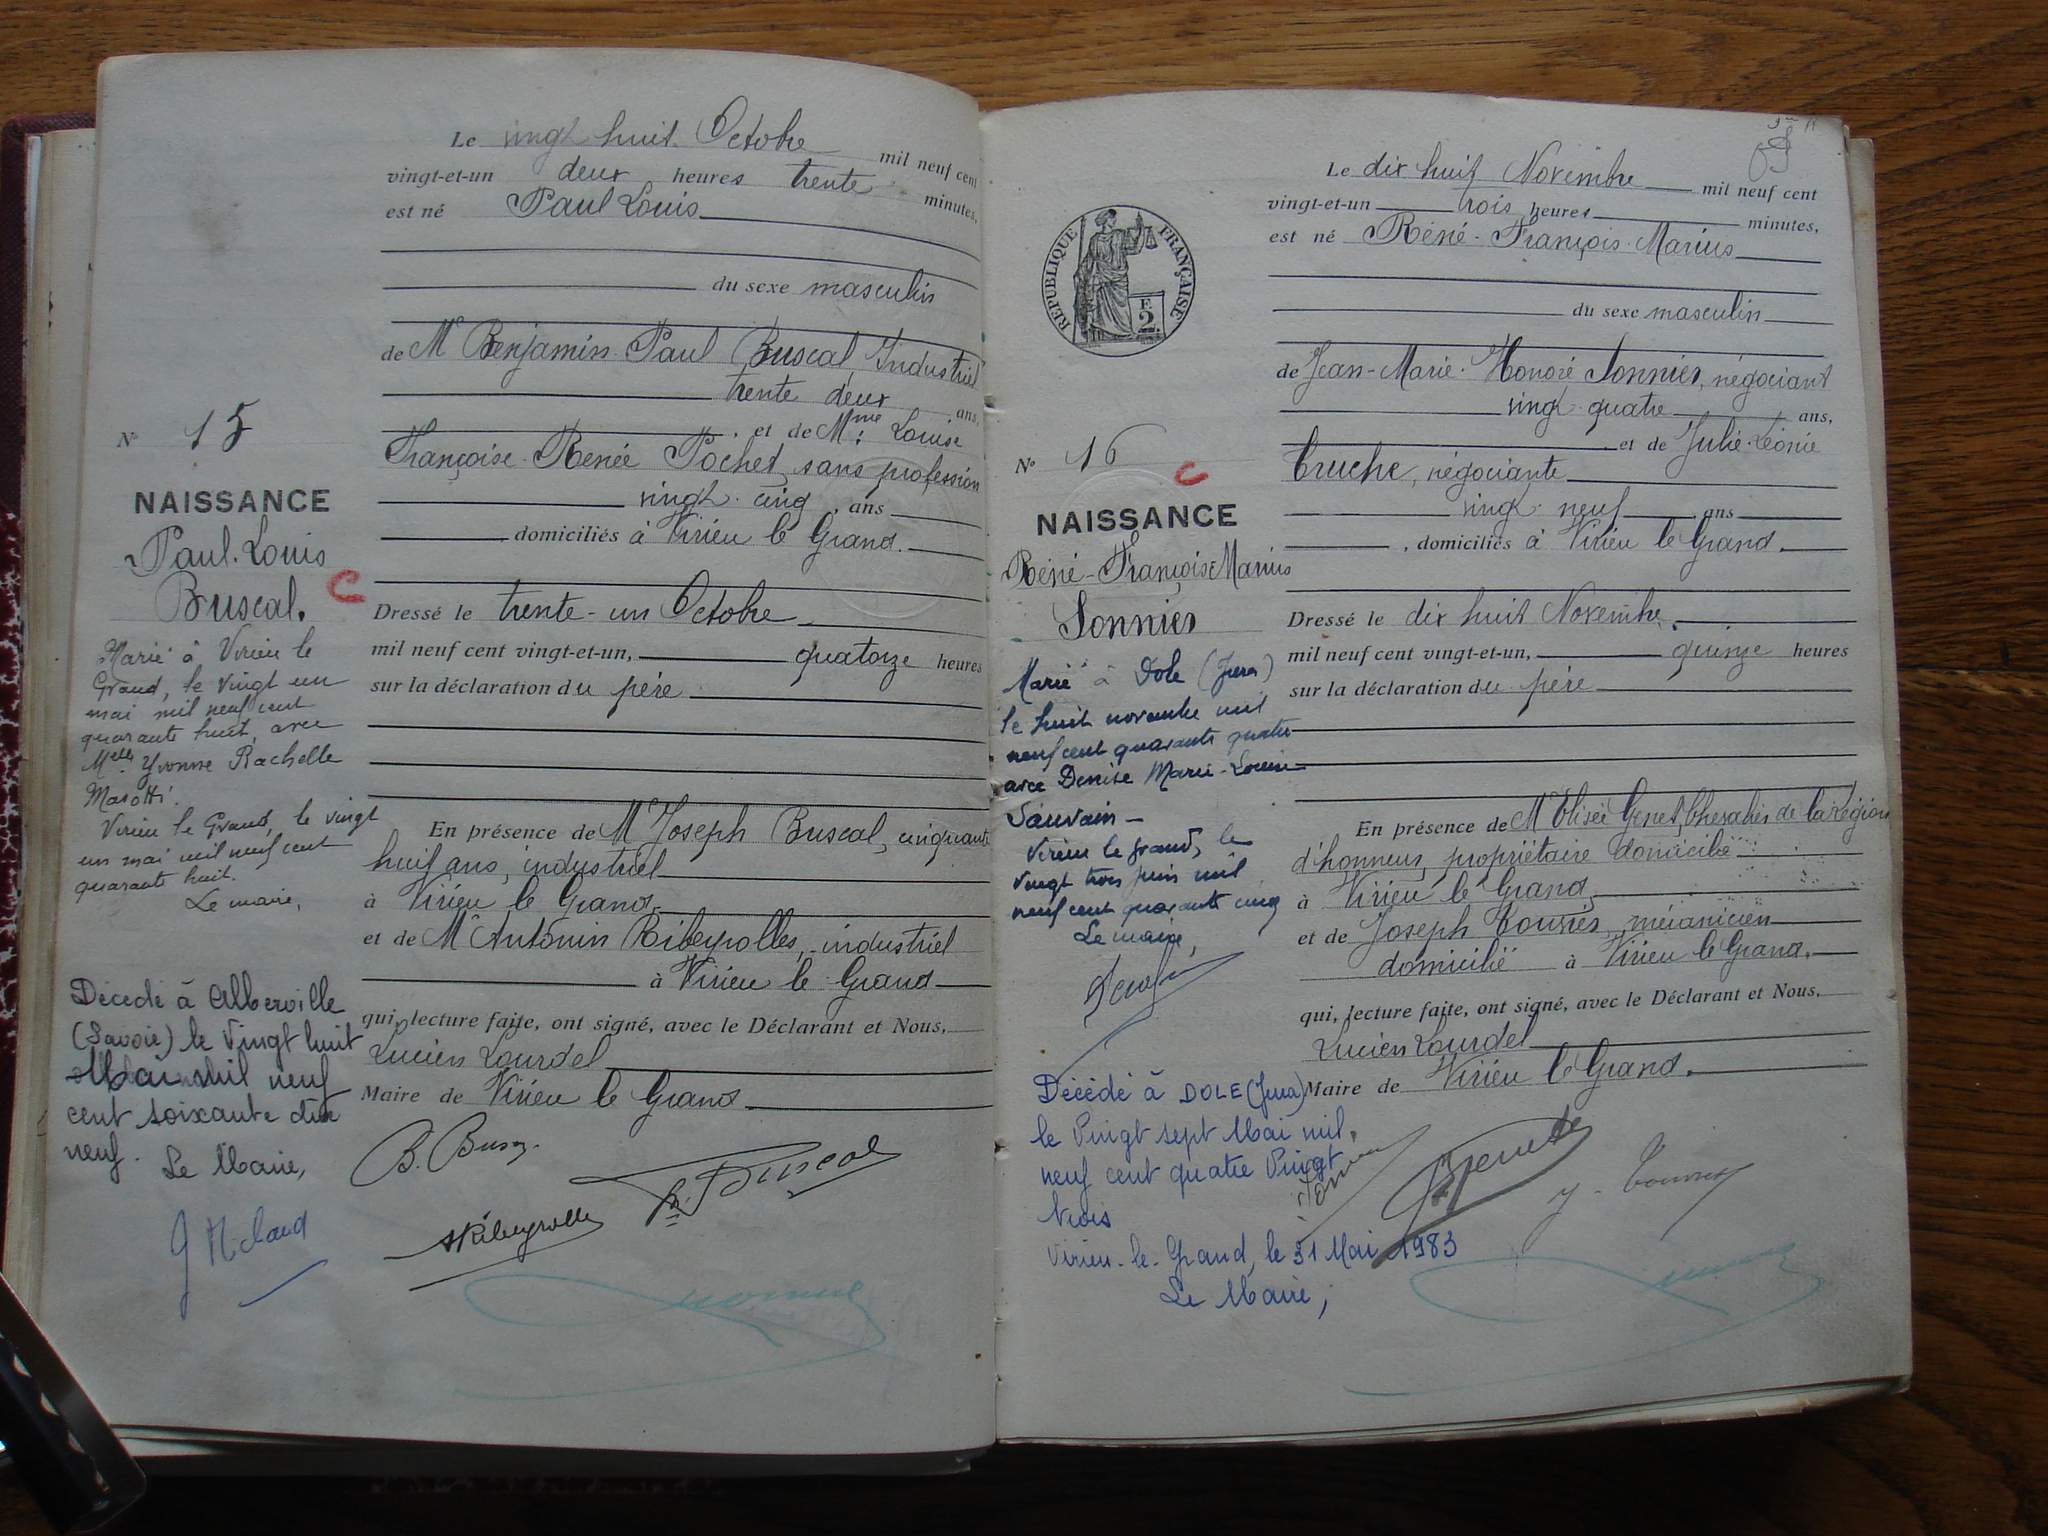 Le vingt huit Octobre mil neuf cent
vingt-et-un deux heures trente minutes,
est né Paul Louis
du sexe masculin
de Mr Benjamin Paul Buscal, Industriel
trente deux ans,
et de Mme Louise
Françoise Renée Pochet, sans profession
vingt cinq, ans
domiciliés à Virieu le Grand.
Dressé le trente-un Octobre
mil neuf cent vingt-et-un, quatorze heures
sur la déclaration du père
En présence de Mr Joseph Buscal, cinquante
huit ans, industriel
à Virieu le Grand
et de Mr Antonin Ribeyrolles, industriel
à Virieu le Grand
qui, lecture faite, ont signé, avec le Déclarant et Nous,
Lucien Lourdel
Maire de Virieu le Grand
N° 15
NAISSANCE
Paul-Louis
Buscal.
C
Marié à Virieu le
Grand, le vingt un
mai mil neuf cent
quarante huit, avec
Melle Yvonne Rachelle
Masotti.
Virieu le Grand, le vingt
un mai mil neuf cent
quarante huit.
Le maire,
Décédé à Albertville
(Savoie) le Vingt huit
Mai mil neuf
cent soixante dix
neuf.
Le Maire,
B. Busc
ARibeyrolles
Buscal
Le dix huit Novembre mil neuf cent
vingt-et-un trois heures minutes,
est né Réné-François-Marius
du sexe masculin
de Jean-Marie-Honoré Sonnier, négociant
vingt quatre ans,
et de Julie-Léonie
Truche, négociante
vingt neuf ans
, domiciliés à Virieu le Grand.
Dressé le dix huit Novembre
mil neuf cent vingt-et-un, quinze heures
sur la déclaration du père
En présence de Mr Elisée Genet, Chevalier de la Légion
d'honneur, propriétaire domicilié
à Virieu le Grand
et de Joseph Tournier, mécanicien
domicilié à Virieu le Grand.
qui, lecture faite, ont signé, avec le Déclarant et Nous,
Lucien Lourdel
Maire de Virieu le Grand.
RÉPUBLIQUE FRANÇAISE
F.
2
N° 16
C
NAISSANCE
Réné-François Marius
Sonnier
Marié à Dole (Jura)
le huit novembre mil
neuf cent quarante quatre
avec Denise Marie-Louise
Sauvain
Virieu le grand, le
vingt trois juin mil
neuf cent quarante cinq
Le maire,
Décédé à DOLE (Jura)
le Vingt sept Mai mil
neuf cent quatre Vingt
trois
Virieu-le-Grand, le 31 Mai 1983
Le Maire,